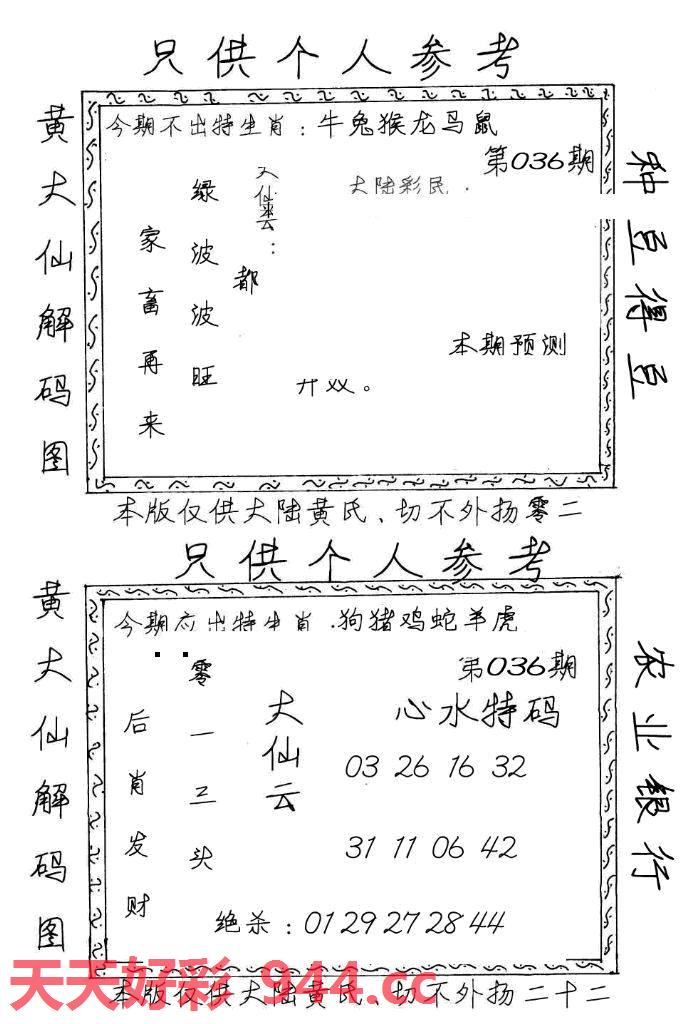 只供个人参考
黄大仙解码图
今期不出特生肖：牛兔猴龙马鼠
第036期
种豆得豆
大仙云：
大陆彩民.
绿波波旺
家畜再来
都
本期预测
开双。
本版仅供大陆黄氏、切不外扬零二
只供个人参考
黄大仙解码图
今期应出特生肖.狗猪鸡蛇羊虎
第036期
农业银行
零一三头
后肖发财
大仙云
心水特码
03 26 16 32
31 11 06 42
绝杀：01 29 27 28 44
天天好彩 944.cc
本版仅供大陆黄氏、切不外扬二十二